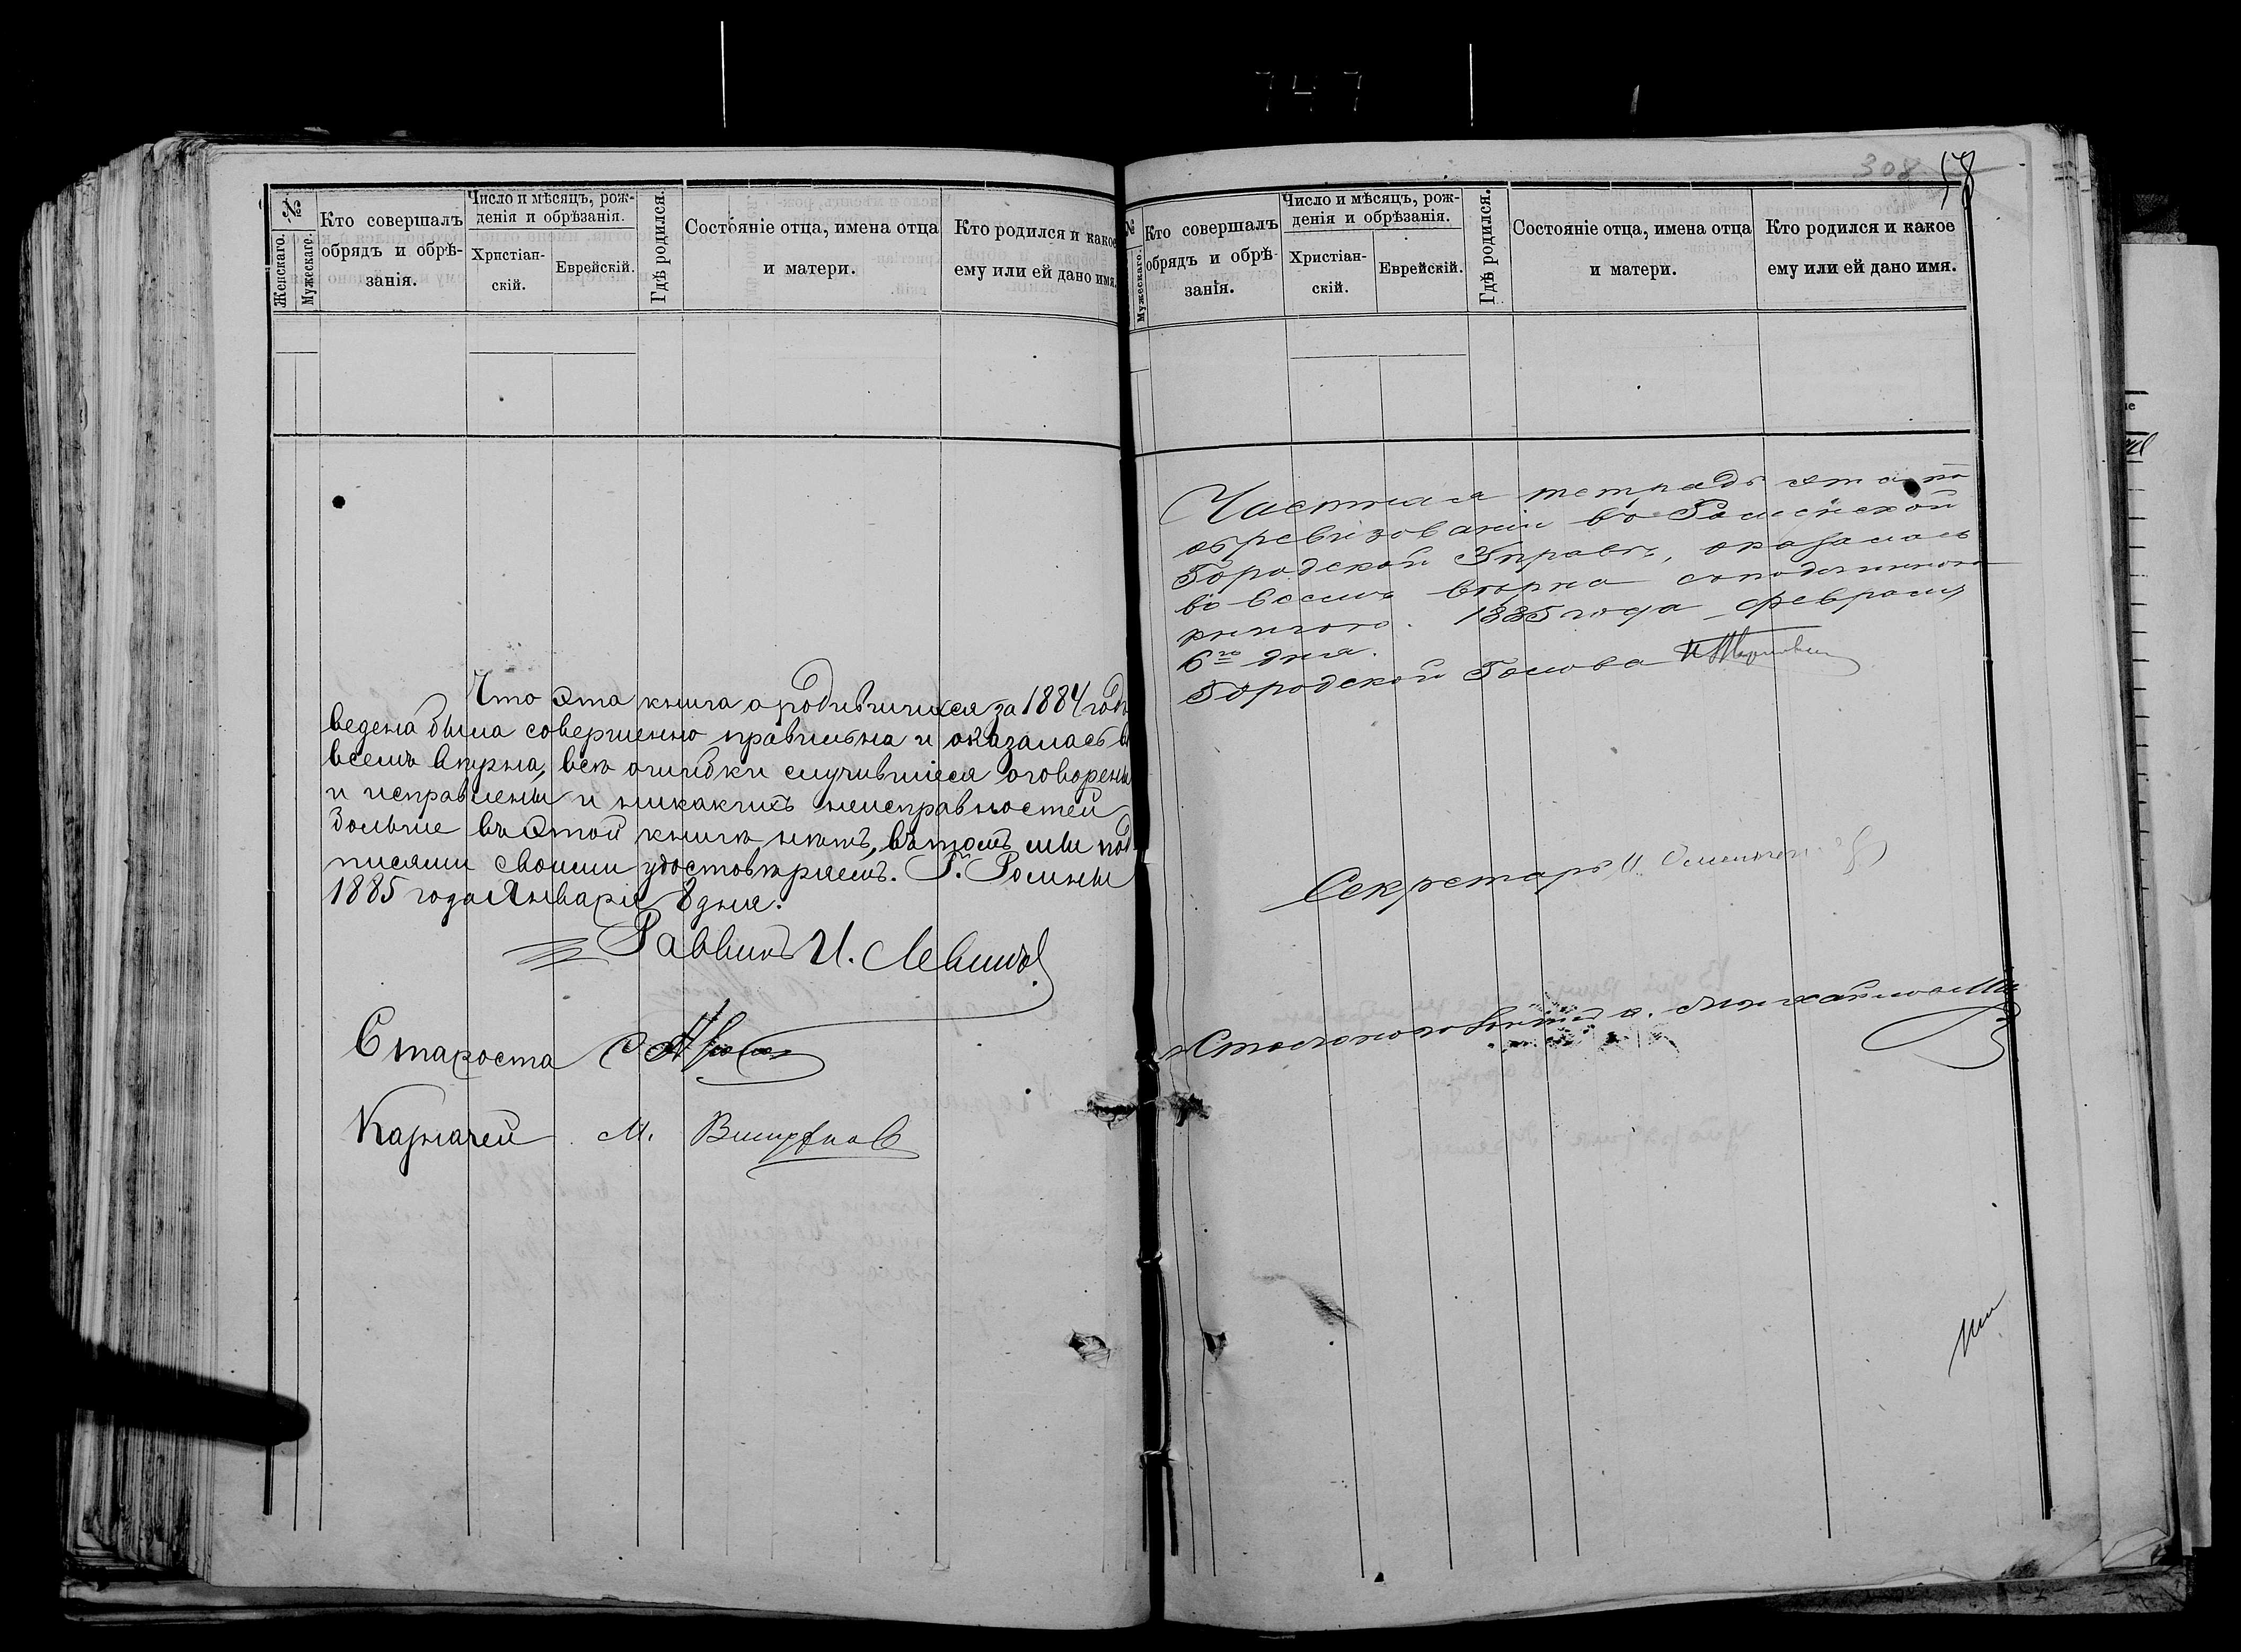 747
№
Женскаго.
Мужскаго.
Кто совершалъ
обрядъ и обрѣ-
занія.
Число и мѣсяцъ, рож-
денія и обрѣзанія.
Христіан-
скій.
Еврейскій.
Гдѣ родился.
Состояніе отца, имена отца
и матери.
Кто родился и какое
ему или ей дано имя.
Что эта книга о родившихся за 1884 годъ
ведена была совершенно правильна и оказалась во
всемъ вѣрна, всѣ ошибки случившіеся оговорены
и исправлены и никакихъ неисправностей
больше въ этой книгѣ нѣтъ, въ томъ мы под
писями своими удостовѣряемъ. Г. Ромны
1885 года Января 8 дня.
Раввинъ И. Левинъ
Староста
Казначей М.
308
58
№
Мужескаго.
Кто совершалъ
обрядъ и обрѣ-
занія.
Число и мѣсяцъ, рож-
денія и обрѣзанія.
Христіан-
скій.
Еврейскій.
Гдѣ родился.
Состояніе отца, имена отца
и матери.
Кто родился и какое
ему или ей дано имя.
тетрадь эта по
обревизованіи въ Роменской
Городской Управѣ, оказалась
во всемъ вѣрна
1885 года февраля
6го дня.
Городской Голова
Секретарь И.